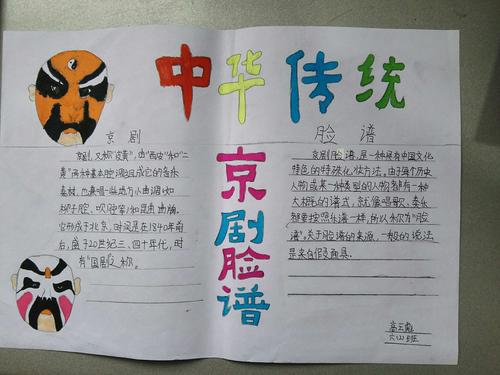 中华传统
京剧脸谱
京剧
京剧,又称"皮黄",由"西皮"和"二
黄"两种基本腔调组成它的音乐
素材,也兼唱一些地方小曲调(如
柳子腔、吹腔等)和昆曲曲牌。
它形成于北京,时间是在1840年前
后,盛于20世纪三、四十年代,时
有"国剧"之称。
脸谱
京剧脸谱,是一种具有中国文化
特色的特殊化妆方法。由于每个历史
人物或某一种类型的人物都有一种
大概的谱式,就像唱歌、奏乐
都要按照乐谱一样,所以称为"脸
谱"。关于脸谱的来源,一般的说法
是来自假面具。
六(2)班